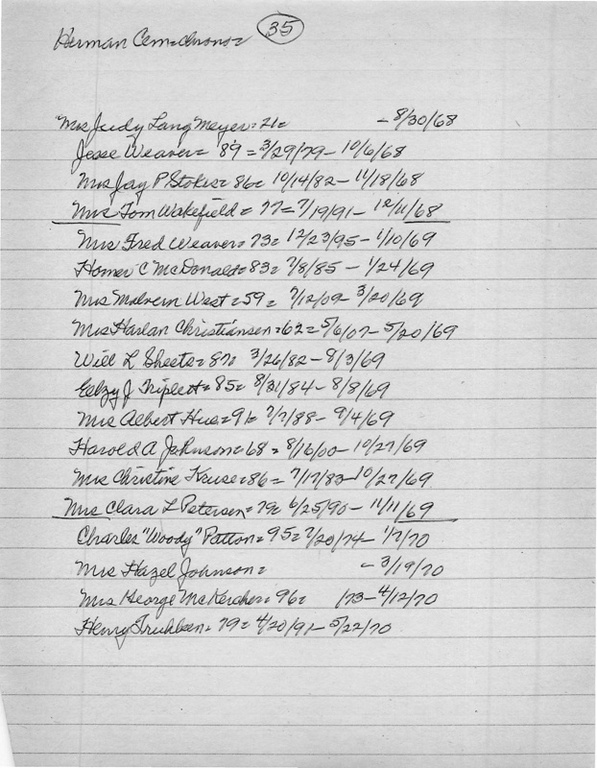 Herman Cem=chrono= 35
Mrs Judy LangMeyer=21= -8/30/68
Jesse Weaver= 89 = 3/29/79- 10/6/68
Mrs Jay P Stokes=86= 10/14/82- 11/18/68
Mrs Tom Wakefield = 77= 7/19/91- 12/11/68
Mrs Fred Weaver=73= 12/23/95- 1/10/69
Homer C McDonald=83= 7/8/85 - 1/24/69
Mrs Malvern West =59= 7/12/09- 3/20/69
Mrs Harlan Christiansen=62=5/6/07-5/20/69
Will L Sheets=87= 3/26/82-8/3/69
J Triplett=85= 8/31/84-8/8/69
Mrs Albert =91= 7/7/88- 9/4/69
Harold A Johnson=68 = 8/16/00- 10/27/69
Mrs Christine Kruse=86= 7/17/83-10/27/69
Mrs Clara L Petersen=79= 6/25/90- 11/11/69
Charles "Woody" Patton= 95= 7/20/74- 1/7/70
Mrs Hazel Johnson= -3/19/70
Mrs George McKercher= 96= /73-4/12/70
Henry = 79= 4/20/91- 5/22/70